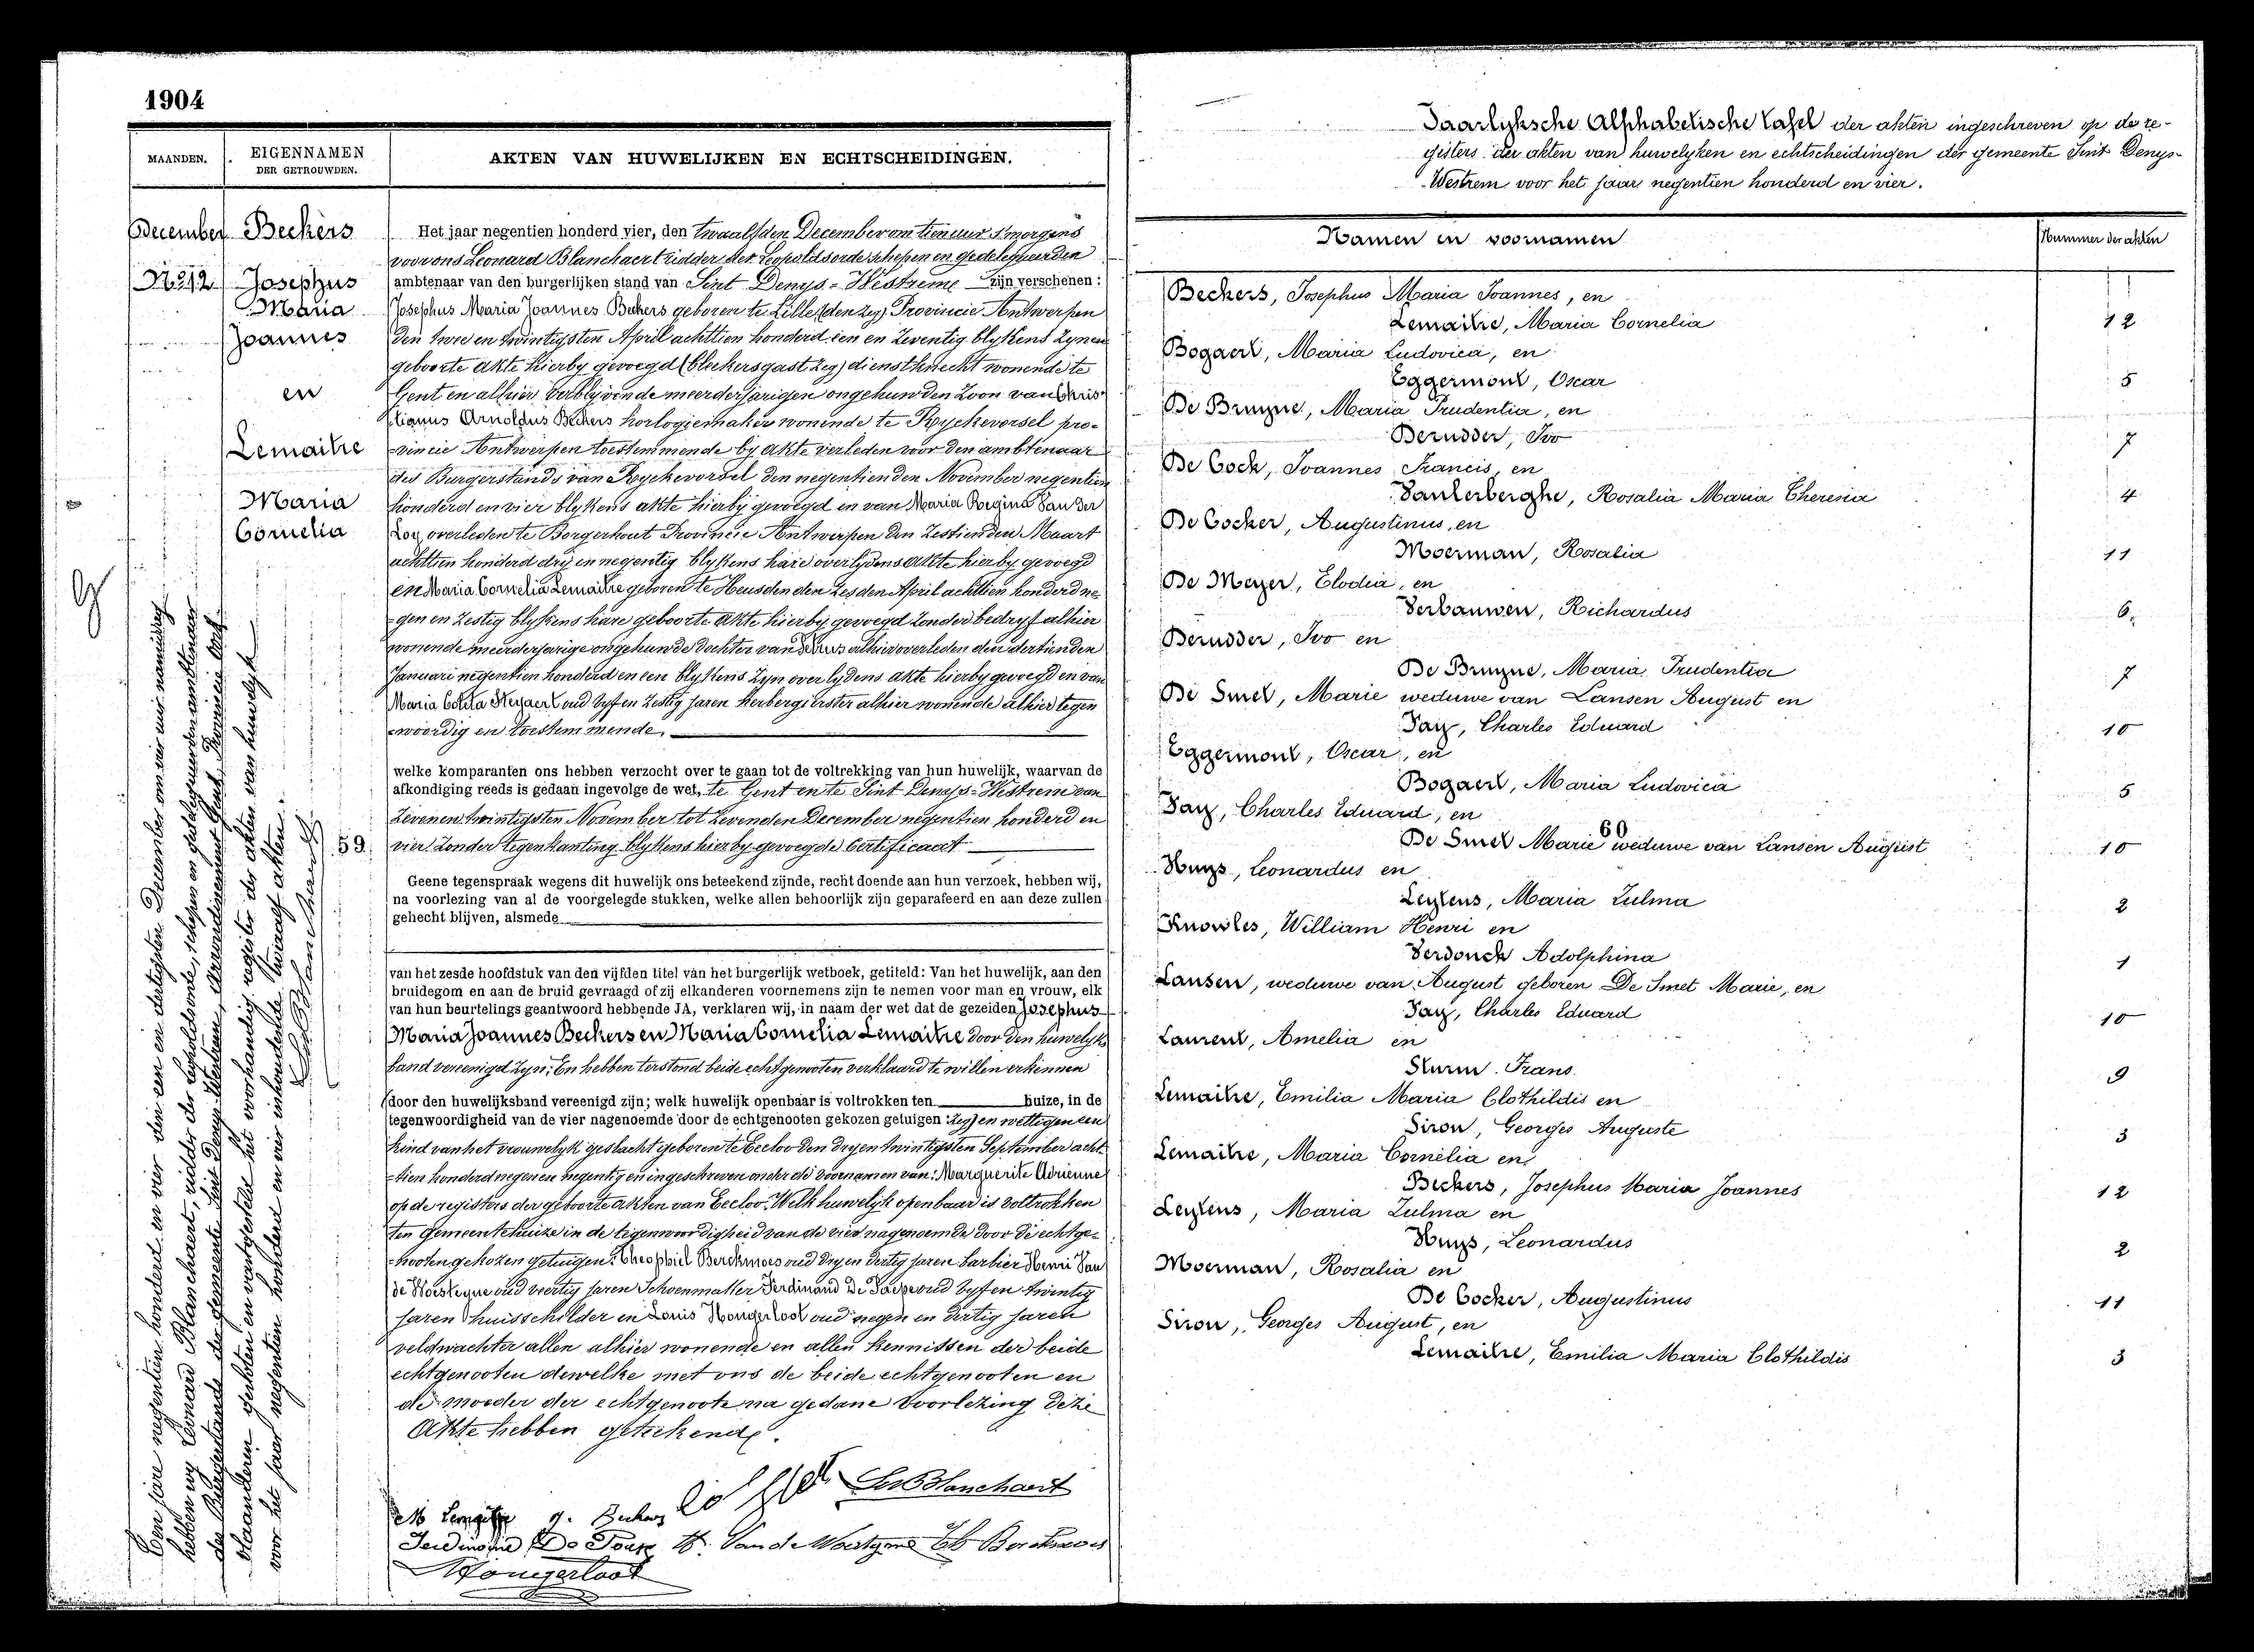 1904
MAANDEN.
EIGENNAMEN
DER GETROUWDEN.
AKTEN VAN HUWELIJKEN EN ECHTSCHEIDINGEN.
December
Nº 12
Beckers
Josephus
Maria
Joannes
en
Lemaitre
Maria
Cornelia
Het jaar negentien honderd vier, den twaalfden December om tien uur 's morgens
voor ons Leonard Blanchaert ridder der Leopoldsorde schepen en gedelegueerden
ambtenaar van den burgerlijken stand van Sint Denys-Westreme zijn verschenen:
Josephus Maria Joannes Beckers geboren te Lille (den zeg) Provincie Antwerpen
den twee en twintigsten April achttien honderd een en zeventig blykens zynen
geboorte akte hierby gevoegd (bleekersgast zeg) dienstknecht wonende te
Gent en alhier verblijvende meerderjarigen ongehuwden zoon van Chris-
tianus Arnoldus Beckers horlogiemaker wonende te Ryckevorsel pro-
vincie Antwerpen toestemmende by akte verleden voor den ambtenaar
des Burgerstands van Ryckevorsel den negentienden November negentien
honderd en vier blykens akte hierby gevoegd en van Maria Regina Van der
Loy overleden te Borgerhout Provincie Antwerpen den zestienden Maart
achttien honderd dry en negentig blykens hare overlydens akte hierby gevoegd
en Maria Cornelia Lemaitre geboren te Heusden den zesden April achttien honderd ne-
gen en zestig blykens hare geboorte akte hierby gevoegd zonder bedryf alhier
wonende meerderjarige ongehuwde dochter van Petrus alhier overleden den dertienden
Januari negentien honderd en een blykens zyn overlydens akte hierby gevoegd en van
Maria Coleta Steyaert oud vyf en zestig jaren herbergierster alhier wonende alhier tegen
woordig en toestemmende.
welke komparanten ons hebben verzocht over te gaan tot de voltrekking van hun huwelijk, waarvan de
afkondiging reeds is gedaan ingevolge de wet, te Gent en te Sint Denys-Westrem van
zeven en twintigsten November tot zevenden December negentien honderd en
59. vier zonder tegenkanting blykens hierby gevoegde Certificaat
Geene tegenspraak wegens dit huwelijk ons beteekend zijnde, recht doende aan hun verzoek, hebben wij,
na voorlezing van al de voorgelegde stukken, welke allen behoorlijk zijn geparafeerd en aan deze zullen
gehecht blijven, alsmede
van het zesde hoofdstuk van den vijfden titel van het burgerlijk wetboek, getiteld: Van het huwelijk, aan den
bruidegom en aan de bruid gevraagd of zij elkanderen voornemens zijn te nemen voor man en vrouw, elk
van hun beurtelings geantwoord hebbende JA, verklaren wij, in naam der wet dat de gezeiden Josephus
Maria Joannes Beckers en Maria Cornelia Lemaitre door den huwelyks
band vereenigd zyn; En hebben terstond beide echtgenooten verklaard te willen erkennen
door den huwelijksband vereenigd zijn; welk huwelijk openbaar is voltrokken ten huize, in de
tegenwoordigheid van de vier nagenoemde door de echtgenooten gekozen getuigen: zeg) en wettigen een
kind van het vrouwelyk geslacht geboren te Eecloo den dry en twintigsten September acht-
tien honderd negen en negentig en ingeschreven onder de voornamen van: Marguerite Adrienne
op de registers der geboorte akten van Eecloo. Welk huwelyk openbaar is voltrokken
ten Gemeentehuize in de tegenwoordigheid van de vier nagenoemde door de echtge-
nooten gekozen getuigen: Theophiel Berckmoes oud dry en dertig jaren barbier Henri Van
de Woesteyne oud veertig jaren Schoenmaker Ferdinand De Paepe oud vyf en twintig
jaren huisschilder en Louis Hongerloot oud negen en dertig jaren
veldwachter allen alhier wonende en allen kennissen der beide
echtgenooten dewelke met ons de beide echtgenooten en
de moeder der echtgenoote na gedane voorlezing deze
Akte hebben geteekend.
M Lemaitre J. Beckers Leo Blanchaert
Ferdinand De Paepe H. Van de Woestyne Th Berckmoes
L Hongerloot
Den jare negentien honderd en vier den een en dertigsten December om vier uur namiddag
hebben wy Leonard Blanchaert, ridder der Leopoldsorde, schepen en gedelegueerden ambtenaar
des Burgerstands der gemeente Sint Denys-Westrem, Arrondissement Gent, Provincie Oost-
vlaanderen gesloten en vastgesteld het voorhandig register der akten van huwelyk
voor het jaar negentien honderd en vier inhoudende twaalf akten.
Leo Blanchaert
Jaarlyksche Alphabetische tafel der akten ingeschreven op de re-
gisters der akten van huwelyken en echtscheidingen der gemeente Sint Denys-
Westrem voor het jaar negentien honderd en vier.
Namen en voornamen
Nummer der akten
Beckers, Josephus Maria Joannes, en
Lemaitre, Maria Cornelia 12
Bogaert, Maria Ludovica, en
Eggermont, Oscar 5
De Bruyne, Maria Prudentia, en
Derudder, Ivo 7
De Cock, Joannes Francis, en
Vanlerberghe, Rosalia Maria Theresia 4
De Cocker, Augustinus, en
Moerman, Rosalia 11
De Meyer, Elodia, en
Verbauwen, Richardus 6.
Derudder, Ivo en
De Bruyne, Maria Prudentia 7
De Smet, Marie weduwe van Lansen August en
Pay, Charles Eduard 10
Eggermont, Oscar, en
Bogaert, Maria Ludovica 5
Pay, Charles Eduard, en
60
De Smet Marie weduwe van Lansen August 10
Huys, Leonardus en
Leytens, Maria Zulma 2
Knowles, William Henri en
Verdonck Adolphina 1
Lansen, weduwe van August geboren De Smet Marie, en
Pay, Charles Eduard 10
Laurent, Amelia en
Sturm Frans. 9
Lemaitre, Emilia Maria Clothildis en
Siron, Georges Auguste 3
Lemaitre, Maria Cornelia en
Beckers, Josephus Maria Joannes 12
Leytens, Maria Zulma en
Huys, Leonardus 2
Moerman, Rosalia en
De Cocker, Augustinus 11
Siron, Georges August, en
Lemaitre, Emilia Maria Clothildis 3